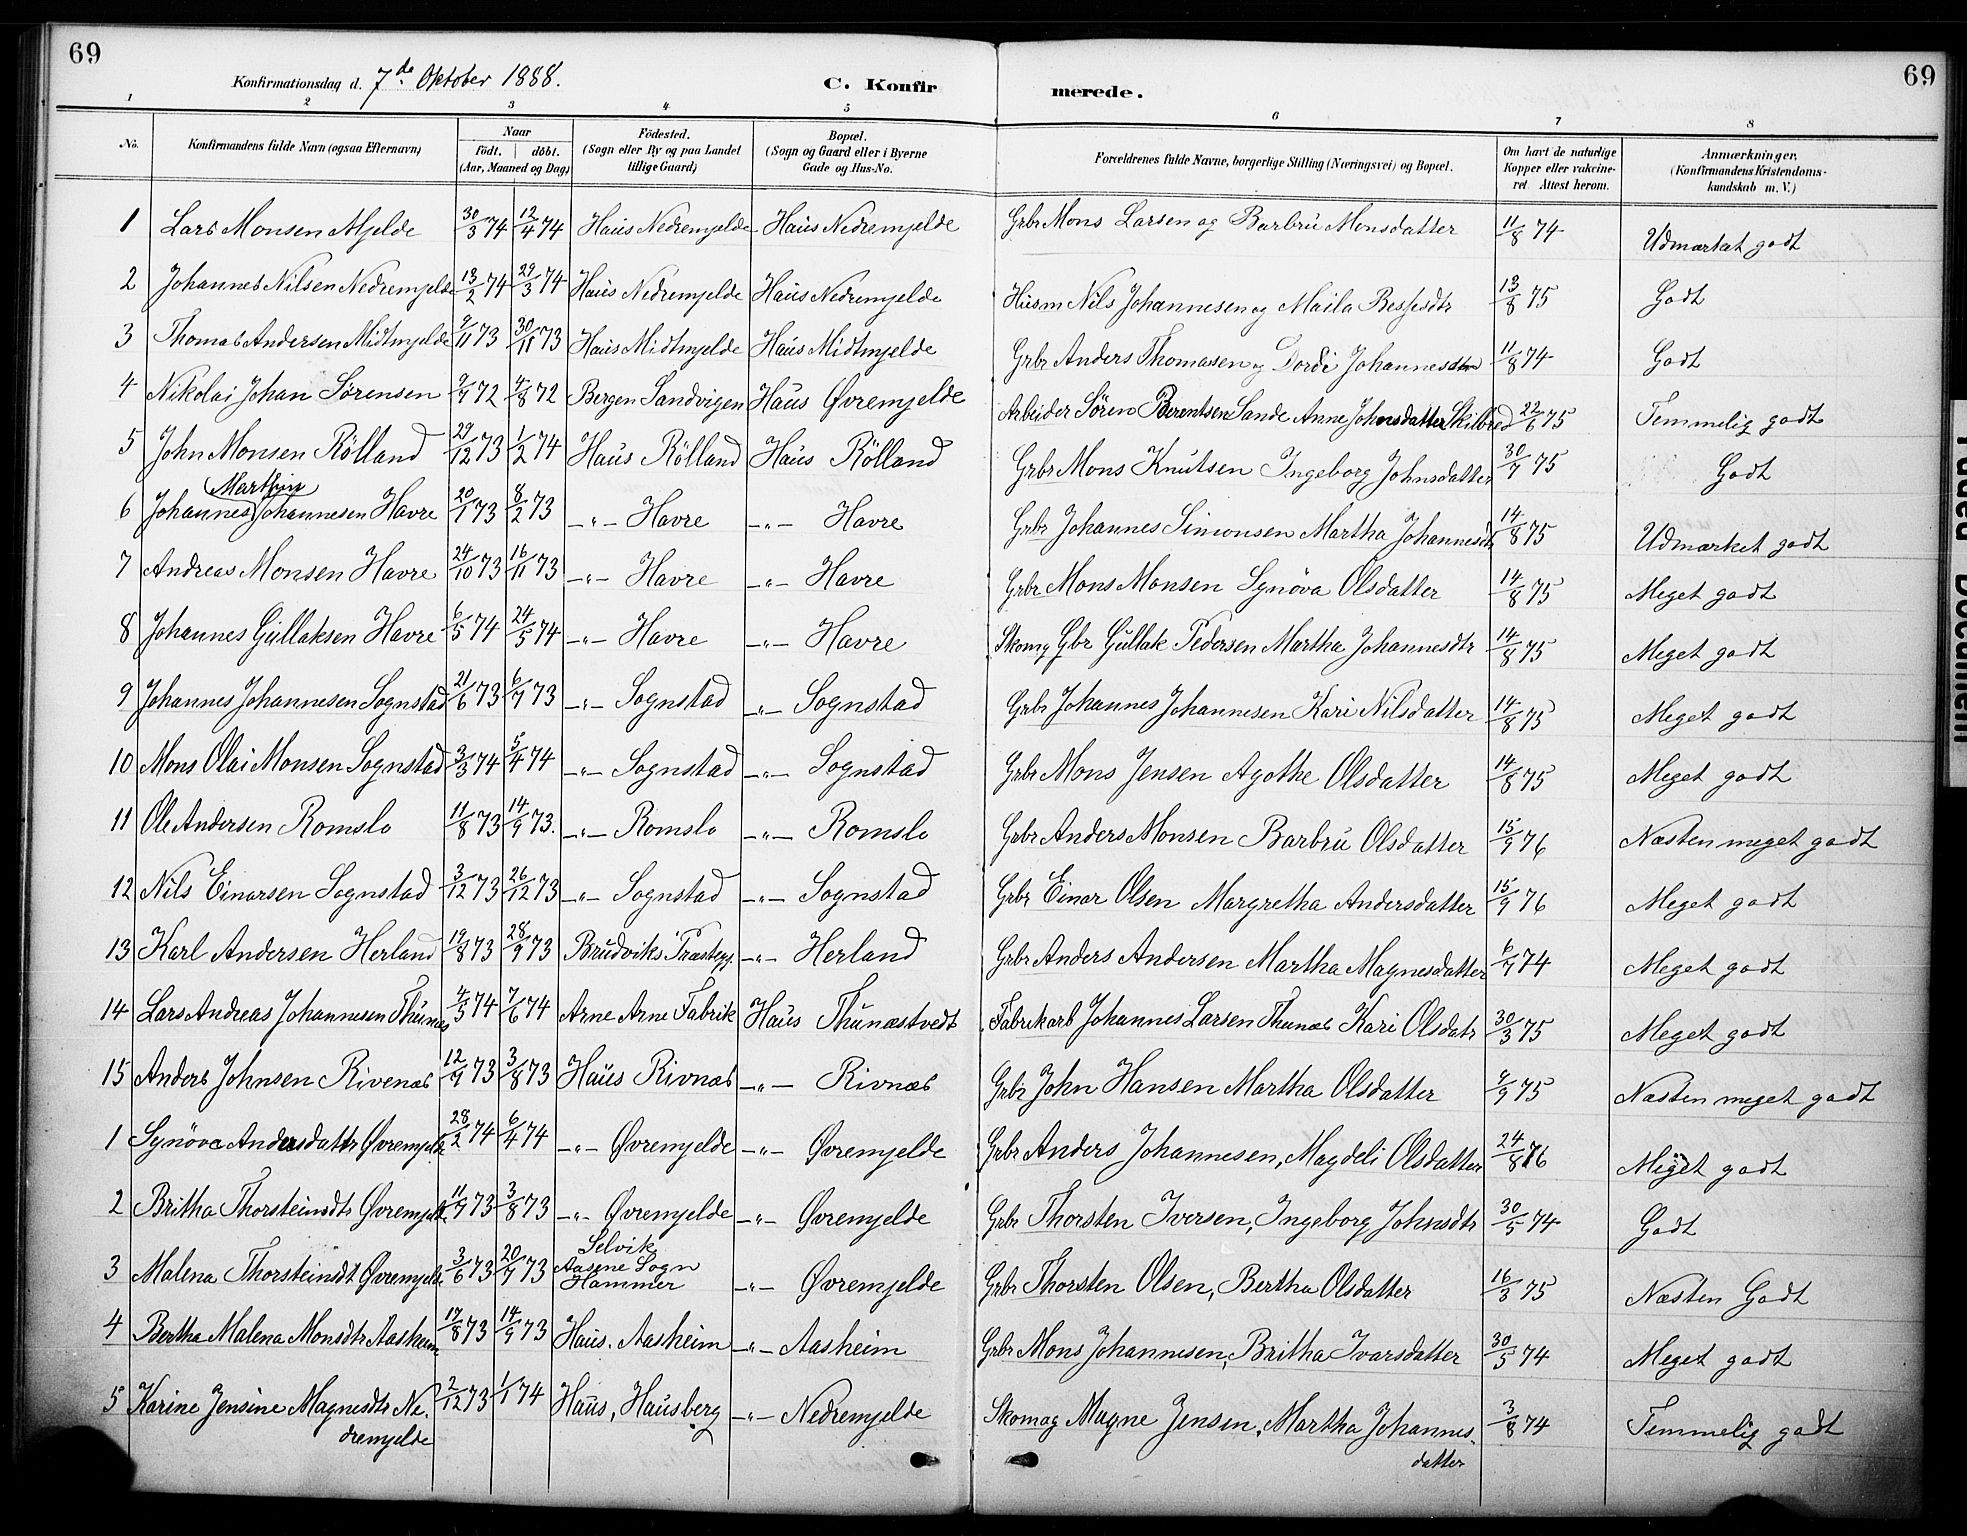 69
69
Konfirmationsdag d. 7de Oktober 1888.
C. Konfirmerede.
1 2 3 4 5 6 7 8
No. | Konfirmandens fulde Navn (ogsaa Efternavn) | Naar födt. | döbt. (Aar, Maaned og Dag) | Födested. (Sogn eller By og paa Landet tillige Gaard) | Bopæl. (Sogn og Gaard eller i Byerne Gade og Hus-No. | Forældrenes fulde Navne, borgerlige Stilling (Næringsvei) og Bopæl. | Om havt de naturlige Kopper eller vakcineret Attest herom. | Anmærkninger, (Konfirmandens Kristendomskundskab m. V.)
1 Lars Monsen Mjelde 30/3 74 12/4 74 Haus Nedremjelde Haus Nedremjelde Grbr Mons Larsen og Barbru Monsdatter 11/8 74 Udmærket godt
2 Johannes Nilsen Nedremjelde 13/2 74 29/3 74 Haus Nedremjelde Haus Nedremjelde Husm Nils Johannesen og Maila 13/8 75 Godt
3 Thomas Andersen Midtmjelde 9/11 73 30/11 73 Haus Midtmjelde Haus Midtmjelde Grbr Anders Thomasen og Dordi Johannesdtr 11/8 74 Godt
4 Nikolai Johan Sørensen 9/7 72 4/8 72 Bergen Sandvigen Haus Øvremjelde Arbeider Sören Berentsen Sande Anne Johnsdatter Skilbred 22/6 75 Temmelig godt
5 John Monsen Rölland 29/12 73 1/2 74 Haus Rölland Haus Rölland Grbr Mons Knutsen Ingeborg Johnsdatter 30/7 75 Godt
Marthin
6 Johannes Johannesen Havre 20/1 73 8/2 73 -"- Havre -"- Havre Grbr Johannes Simonsen Martha Johannesdtr 14/8 75 Udmærket godt
7 Andreas Monsen Havre 24/10 73 16/11 73 -"- Havre -"- Havre Grbr Mons Monsen Synöva Olsdatter 14/8 75 Meget godt
8 Johannes Gullaksen Havre 6/5 74 24/5 74 -"- Havre -"- Havre Skomg Gbr Gullak Pedersen Martha Johannesdtr 14/8 75 Meget godt
9 Johannes Johannesen Sognstad 21/6 73 6/7 73 -"- Sognstad -"- Sognstad Grbr Johannes Johannesen Kari Nilsdatter 14/8 75 Meget godt
10 Mons Olai Monsen Sognstad 3/3 74 5/4 74 -"- Sognstad -"- Sognstad Grbr Mons Jensen Agothe Olsdatter 14/8 75 Meget godt
11 Ole Andersen Romslo 11/8 73 14/9 73. -"- Romslo -"- Romslo Grbr Anders Monsen Barbru Olsdatter 15/9 76 Næsten meget godt
12 Nils Einarsen Sognstad 3/12 73 26/12 73 -"- Sognstad -"- Sognstad Grbr Einar Olsen Margretha Andersdatter 15/9 76 Meget godt
13 Karl Andersen Herland 19/8 73 28/9 73 Brudviks Præstegj. -"- Herland Grbr Anders Andersen Martha Magnesdatter 6/7 74 Meget godt
14 Lars Andreas Johannesen Thunæs 4/5 74 7/6 74 Arne Arne Fabrik Haus Thunæstvedt Fabrikarb Johannes Larsen Thunæs Kari Olsdatr 30/3 75 Meget godt
15 Anders Johnsen Rivenæs 12/7 73 3/8 73 Haus Rivnæs -"- Rivnæs Grbr John Hansen Martha Olsdatter 9/9 75 Næsten meget godt
1 Synöva Andersdattr Øvremjelde 28/2 74 6/4 74 -"- Øvremjelde -"- Øvremjelde Grbr Anders Johannesen, Magdeli Olsdatter 24/8 76 Meget godt
2 Britha Thorsteinsdtr Øvremjelde 11/7 73 3/8 73 -"- Øvremjelde -"- Øvremjelde Grbr Thorsten Iversen, Ingeborg Johnsdtr 30/5 74 Godt
3 Malena Thorsteinsdt Øvremjelde 3/6 73 20/7 73 Selvik Aasene Sogn Hammer -"- Øvremjelde Grbr Thorsten Olsen, Bertha Olsdatter 16/3 75 Næsten Godt
4 Bertha Malena Monsdtr Aasheim 17/8 73 14/9 73 Haus. Aasheim -"- Aasheim Grbr Mons Johannesen, Britha Ivarsdatter 30/5 74 Meget godt
5 Karine Jensine Magnesdtr Ne- 2/12 73 1/1 74 Haus, Hausberg -"- Nedremjelde Skomag Magne Jensen, Martha Johannes- 3/8 74 Temmelig godt
dremjelde datter